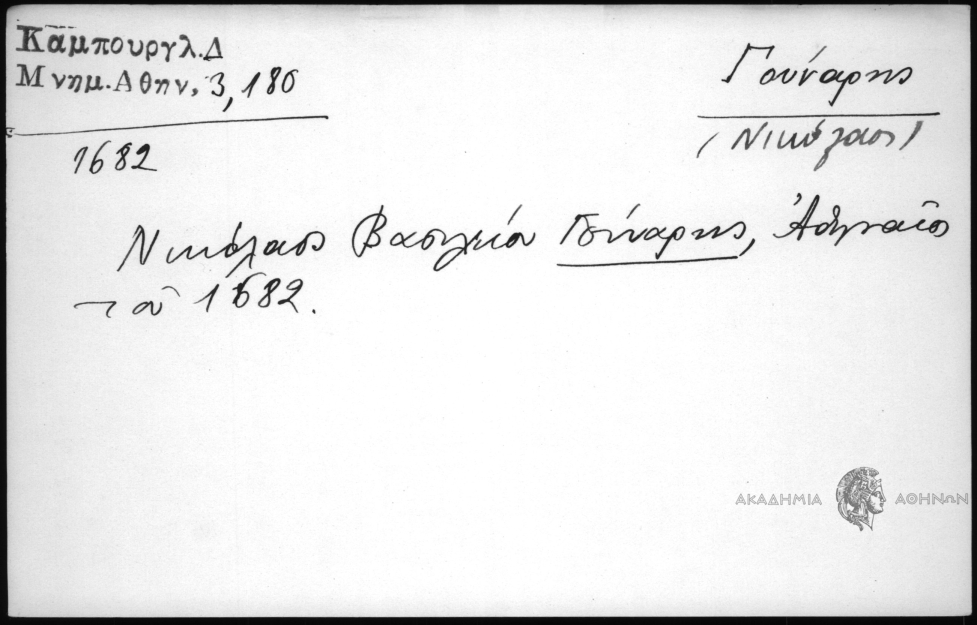 Καμπουργλ.Δ
Μνημ.Αθην. 3, 180
1682
Γούναρης
(Νικόλαος)
Νικόλαος Βασιλείου Γούναρης, Ἀθηναῖος
τοῦ 1682.
ΑΚΑΔΗΜΙΑ ΑΘΗΝΩΝ